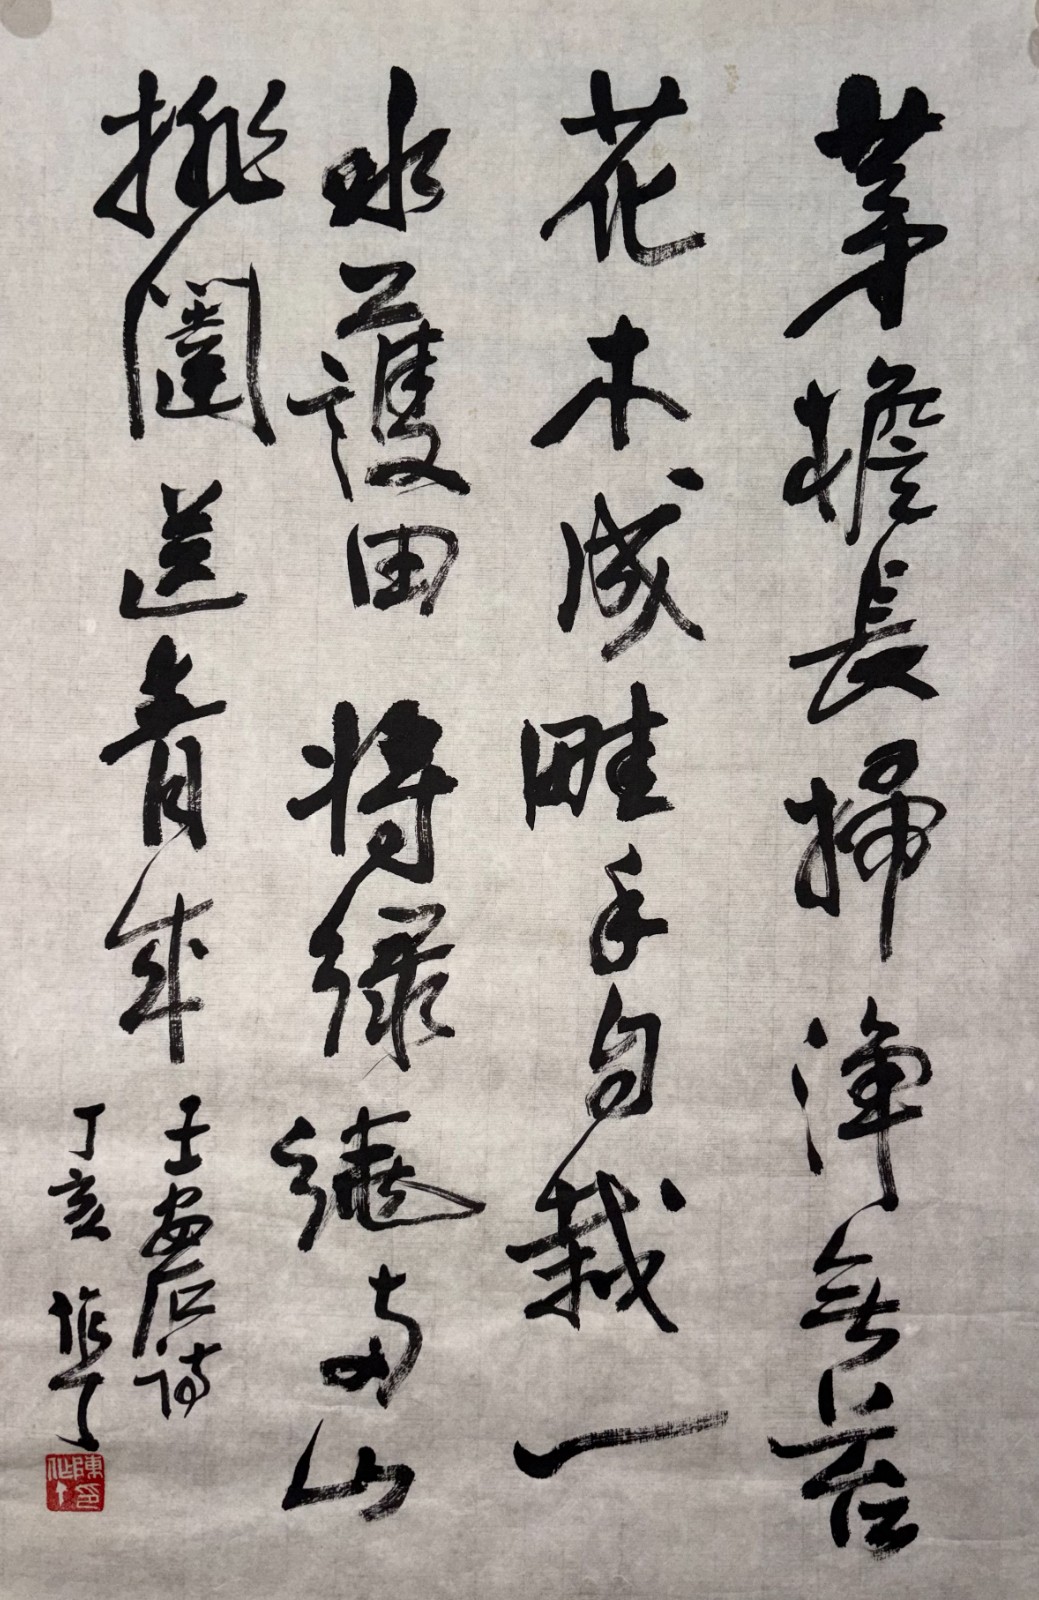 茅檐長掃淨無苔
花木成畦手自栽一
水護田將綠繞兩山
排闥送青來
王安石詩
丁亥